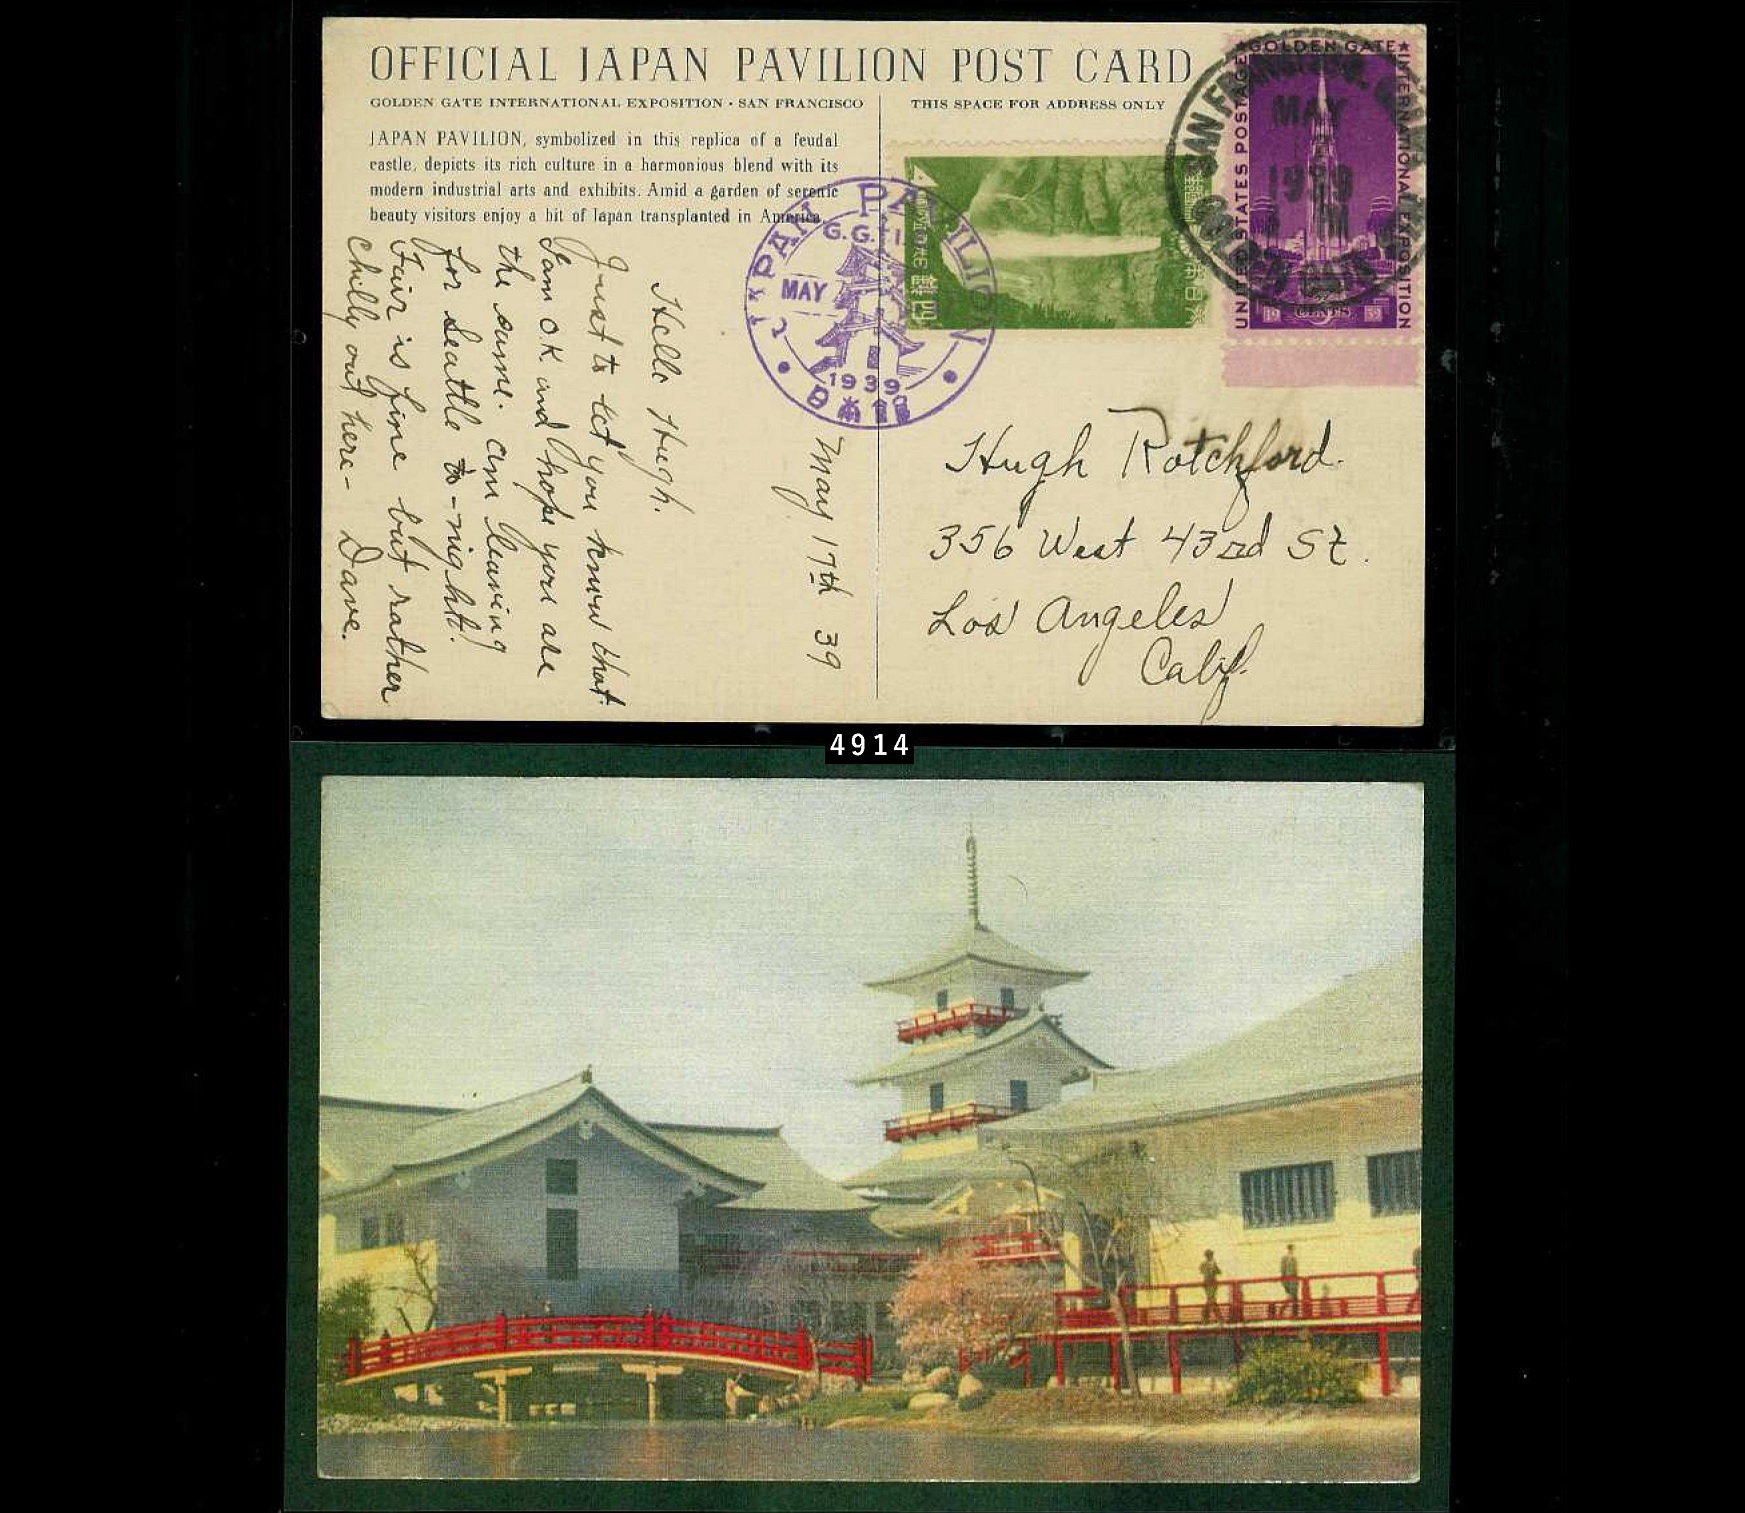 OFFICIAL JAPAN PAVILION POST CARD
GOLDEN GATE INTERNATIONAL EXPOSITION · SAN FRANCISCO
THIS SPACE FOR ADDRESS ONLY
JAPAN PAVILION, symbolized in this replica of a feudal
castle, depicts its rich culture in a harmonious blend with its
modern industrial arts and exhibits. Amid a garden of serenic
beauty visitors enjoy a bit of Japan transplanted in America.
May 17th 39
Hello Hugh.
Just to let you know that
I am O.K and hope you are
the same. am leaving
for Seattle to-night.
Fair is fine but rather
chilly out here - Dave.
JAPAN PAVILION
G.G.I.
MAY
1939
日本
4
UNITED STATES POSTAGE
GOLDEN GATE
INTERNATIONAL EXPOSITION
19 CENTS 39
SAN FRANCISCO
MAY
1939
Hugh Rotchford.
356 West 43rd St.
Los Angeles
Calif.
4914